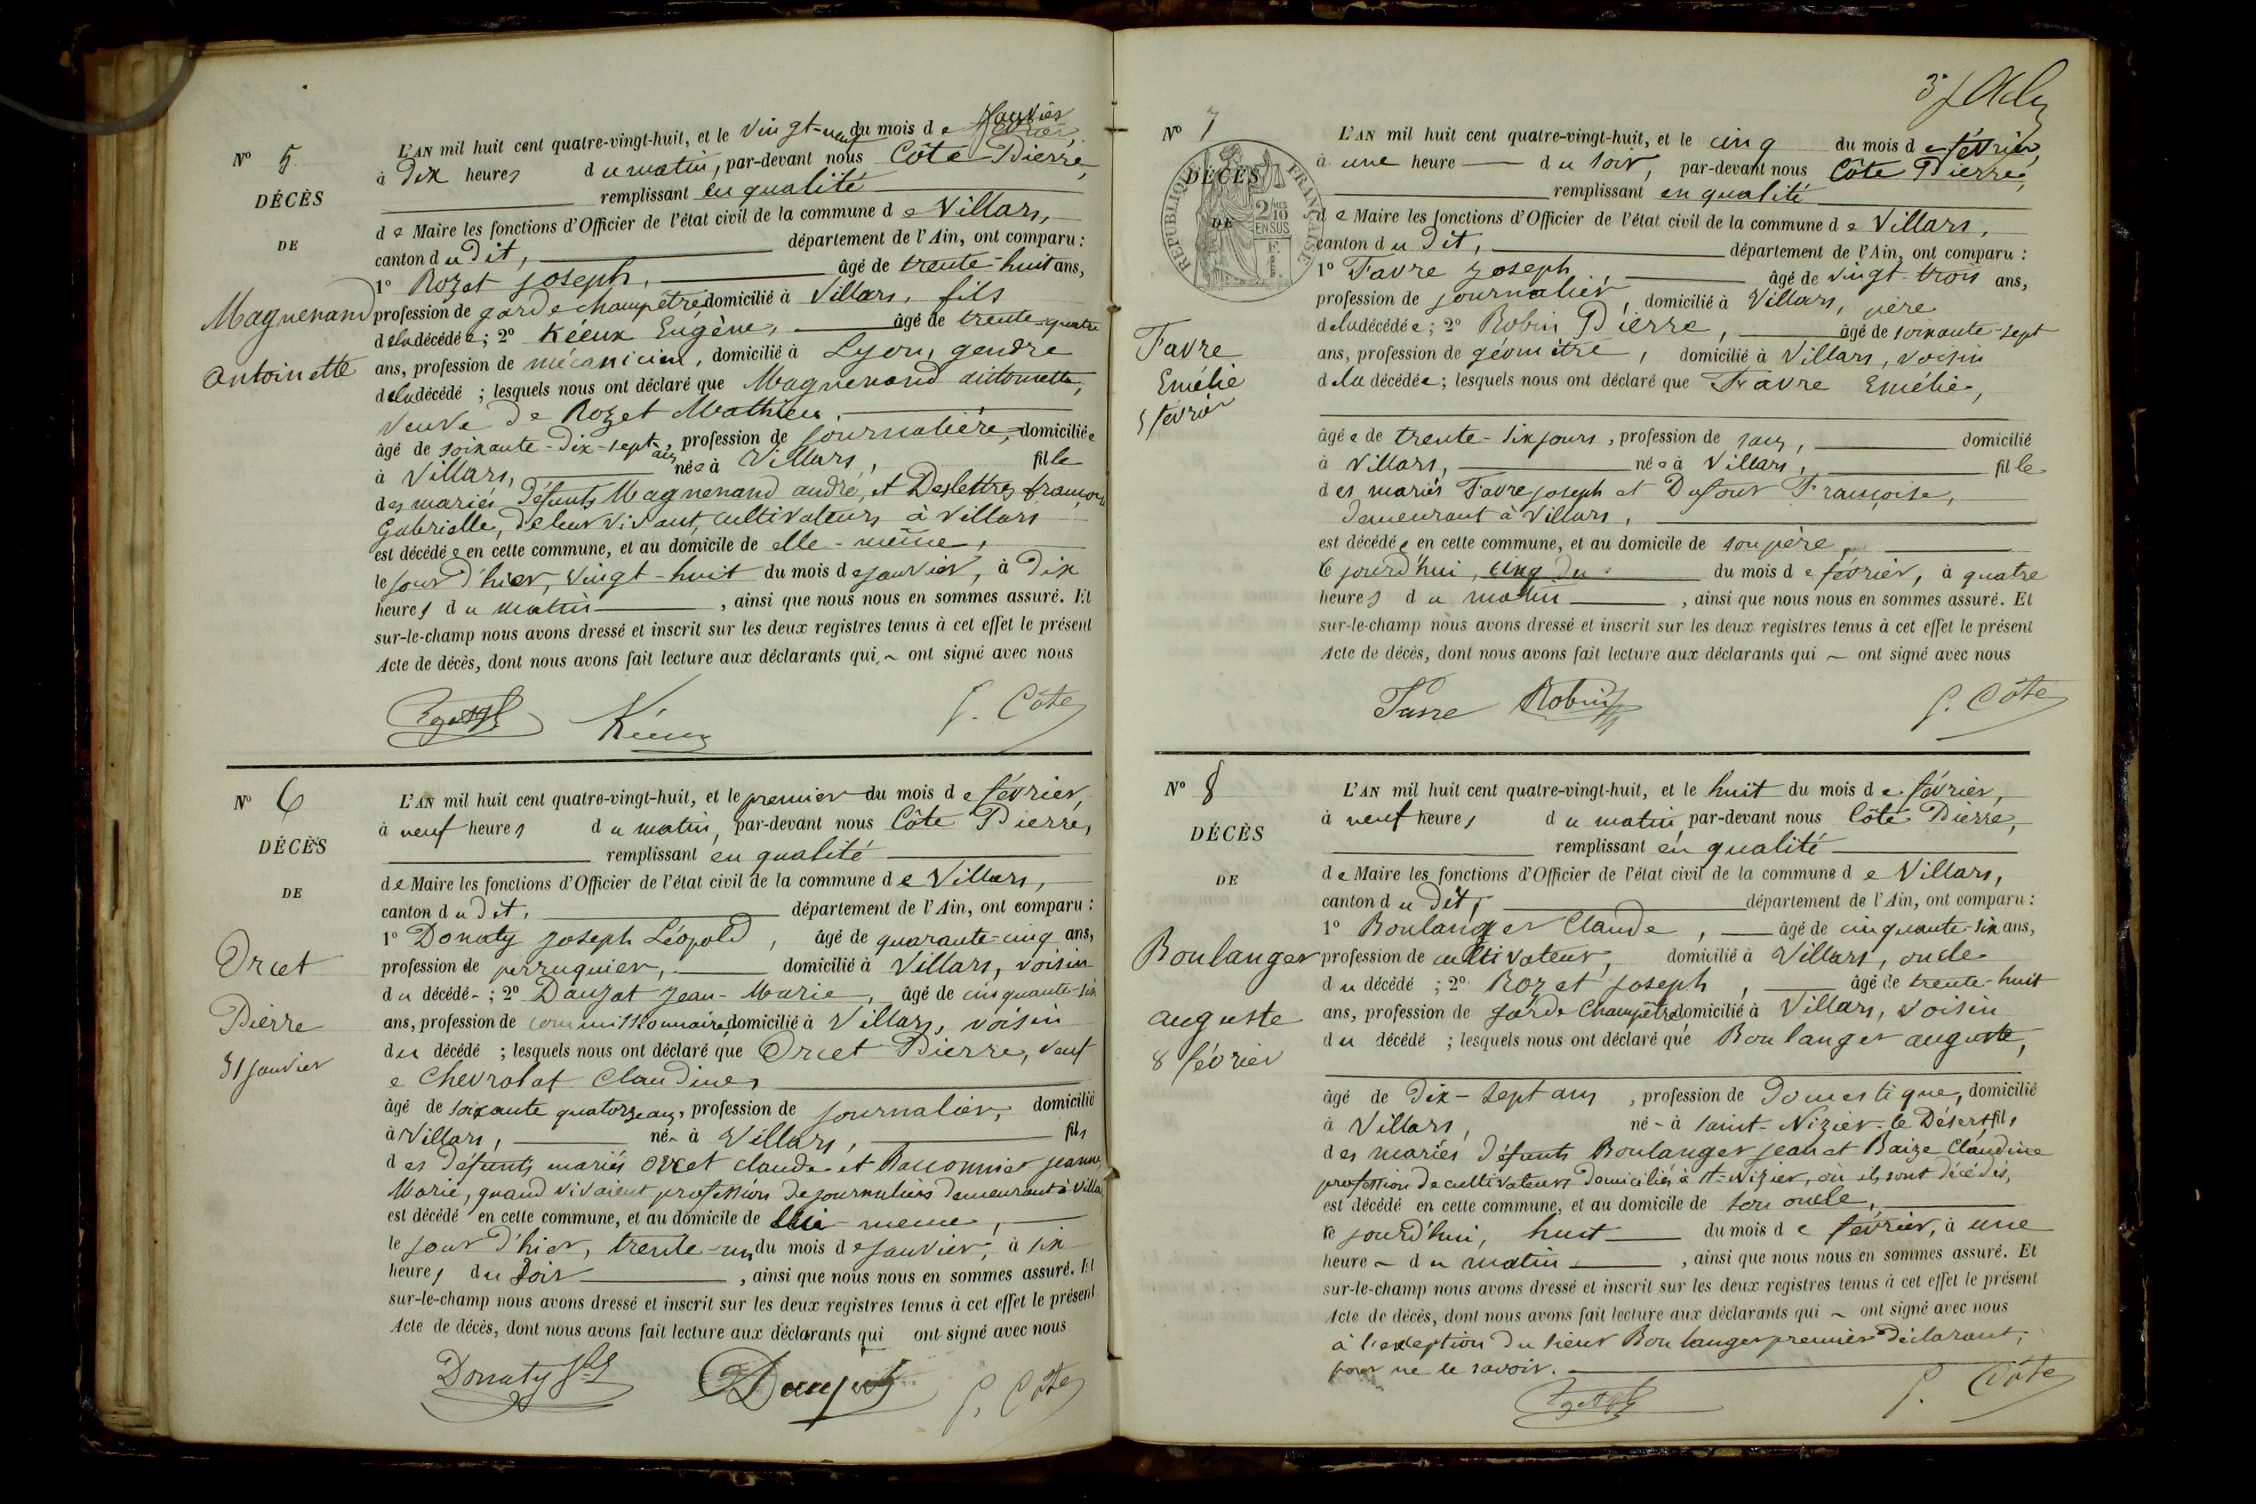 N° 5
DÉCÈS
DE
Magnenand
Antoinette
L'AN mil huit cent quatre-vingt-huit, et le vingt-neuf du mois de Janvier
à dix heures du matin, par-devant nous Côte Pierre,
remplissant en qualité
de Maire les fonctions d'Officier de l'état civil de la commune de Villars,
canton du dit, département de l'Ain, ont comparu :
1° Rozet Joseph, âgé de trente-huit ans,
profession de garde champêtre, domicilié à Villars, fils
de la décédée ; 2° Kéeux Eugène, âgé de trente-quatre
ans, profession de mécanicien, domicilié à Lyon, gendre
de la décédé ; lesquels nous ont déclaré que Magnenand antoinette,
veuve de Rozet Mathieu,
âgé de soixante-dix-sept ans, profession de journalière, domiciliée
à Villars, née à Villars, fille
des mariés défunts Magnenand andré, et Deslettres françoise
Gabrielle, de leur vivant, cultivateurs à Villars
est décédée en cette commune, et au domicile de elle-même,
le jour d'hier, vingt-huit du mois de janvier, à dix
heures du matin, ainsi que nous nous en sommes assuré. Et
sur-le-champ nous avons dressé et inscrit sur les deux registres tenus à cet effet le présent
Acte de décès, dont nous avons fait lecture aux déclarants qui ont signé avec nous
Kéeux P. Côte
N° 6
DÉCÈS
DE
Orcet
Pierre
31 janvier
L'AN mil huit cent quatre-vingt-huit, et le premier du mois de février,
à neuf heures du matin, par-devant nous Côte Pierre,
remplissant en qualité
de Maire les fonctions d'Officier de l'état civil de la commune de Villars,
canton du dit, département de l'Ain, ont comparu :
1° Donaty Joseph Léopold, âgé de quarante-cinq ans,
profession de perruquier, domicilié à Villars, voisin
du décédé ; 2° Dauzat Jean-Marie, âgé de cinquante-six
ans, profession de commissionnaire, domicilié à Villars, voisin
du décédé ; lesquels nous ont déclaré que Orcet Pierre, veuf
e Chevrolat Claudine,
âgé de soixante quatorze ans, profession de journalier, domicilié
à Villars, né à Villars, fils
des défunts mariés Orcet claude et jeanne
Marie, quand vivaient profession de journaliers demeurant à Villars
est décédé en cette commune, et au domicile de lui-même,
le jour d'hier, trente-un du mois de janvier, à six
heures du soir, ainsi que nous nous en sommes assuré. Et
sur-le-champ nous avons dressé et inscrit sur les deux registres tenus à cet effet le présent
Acte de décès, dont nous avons fait lecture aux déclarants qui ont signé avec nous
Donaty Dauzat P. Côte
N° 7
RÉPUBLIQUE FRANÇAISE
2/10 EN SUS
DÉCÈS
DE
Favre
Emélie
5 février
L'AN mil huit cent quatre-vingt-huit, et le cinq du mois de février,
à une heure du soir, par-devant nous Côte Pierre,
remplissant en qualité
de Maire les fonctions d'Officier de l'état civil de la commune de Villars,
canton du dit, département de l'Ain, ont comparu :
1° Favre Joseph, âgé de vingt-trois ans,
profession de journalier, domicilié à Villars, père
de la décédée ; 2° Robin Pierre, âgé de soixante-sept
ans, profession de géomètre, domicilié à Villars, voisin
de la décédée ; lesquels nous ont déclaré que Favre Emélie,
âgée de trente-six jours, profession de sans, domicilié
à Villars, née à Villars, fille
des mariés Favre joseph et Dufour Françoise,
demeurant à Villars,
est décédée en cette commune, et au domicile de son père,
ce jourd'hui, cinq du du mois de février, à quatre
heures du matin, ainsi que nous nous en sommes assuré. Et
sur-le-champ nous avons dressé et inscrit sur les deux registres tenus à cet effet le présent
Acte de décès, dont nous avons fait lecture aux déclarants qui ont signé avec nous
Favre Robin P. Côte
N° 8
DÉCÈS
DE
Boulanger
auguste
8 février
L'AN mil huit cent quatre-vingt-huit, et le huit du mois de février,
à neuf heures du matin, par-devant nous Côte Pierre,
remplissant en qualité
de Maire les fonctions d'Officier de l'état civil de la commune de Villars,
canton du dit, département de l'Ain, ont comparu :
1° Boulanger Claude, âgé de cinquante-six ans,
profession de cultivateur, domicilié à Villars, oncle
du décédé ; 2° Rozet Joseph, âgé de trente-huit
ans, profession de garde Champêtre, domicilié à Villars, voisin
du décédé ; lesquels nous ont déclaré que Boulanger auguste,
âgé de dix-sept ans, profession de domestique, domicilié
à Villars, né à saint-Nizier-le Désert, fils
des mariés défunts Boulanger jean et Baize Claudine
profession de cultivateurs domiciliés à St-Nizier, où ils sont décédés,
est décédé en cette commune, et au domicile de son oncle,
ce jourd'hui, huit du mois de février, à une
heure du matin, ainsi que nous nous en sommes assuré. Et
sur-le-champ nous avons dressé et inscrit sur les deux registres tenus à cet effet le présent
Acte de décès, dont nous avons fait lecture aux déclarants qui ont signé avec nous
à l'exception du sieur Boulanger premier déclarant,
pour ne le savoir.
P. Côte